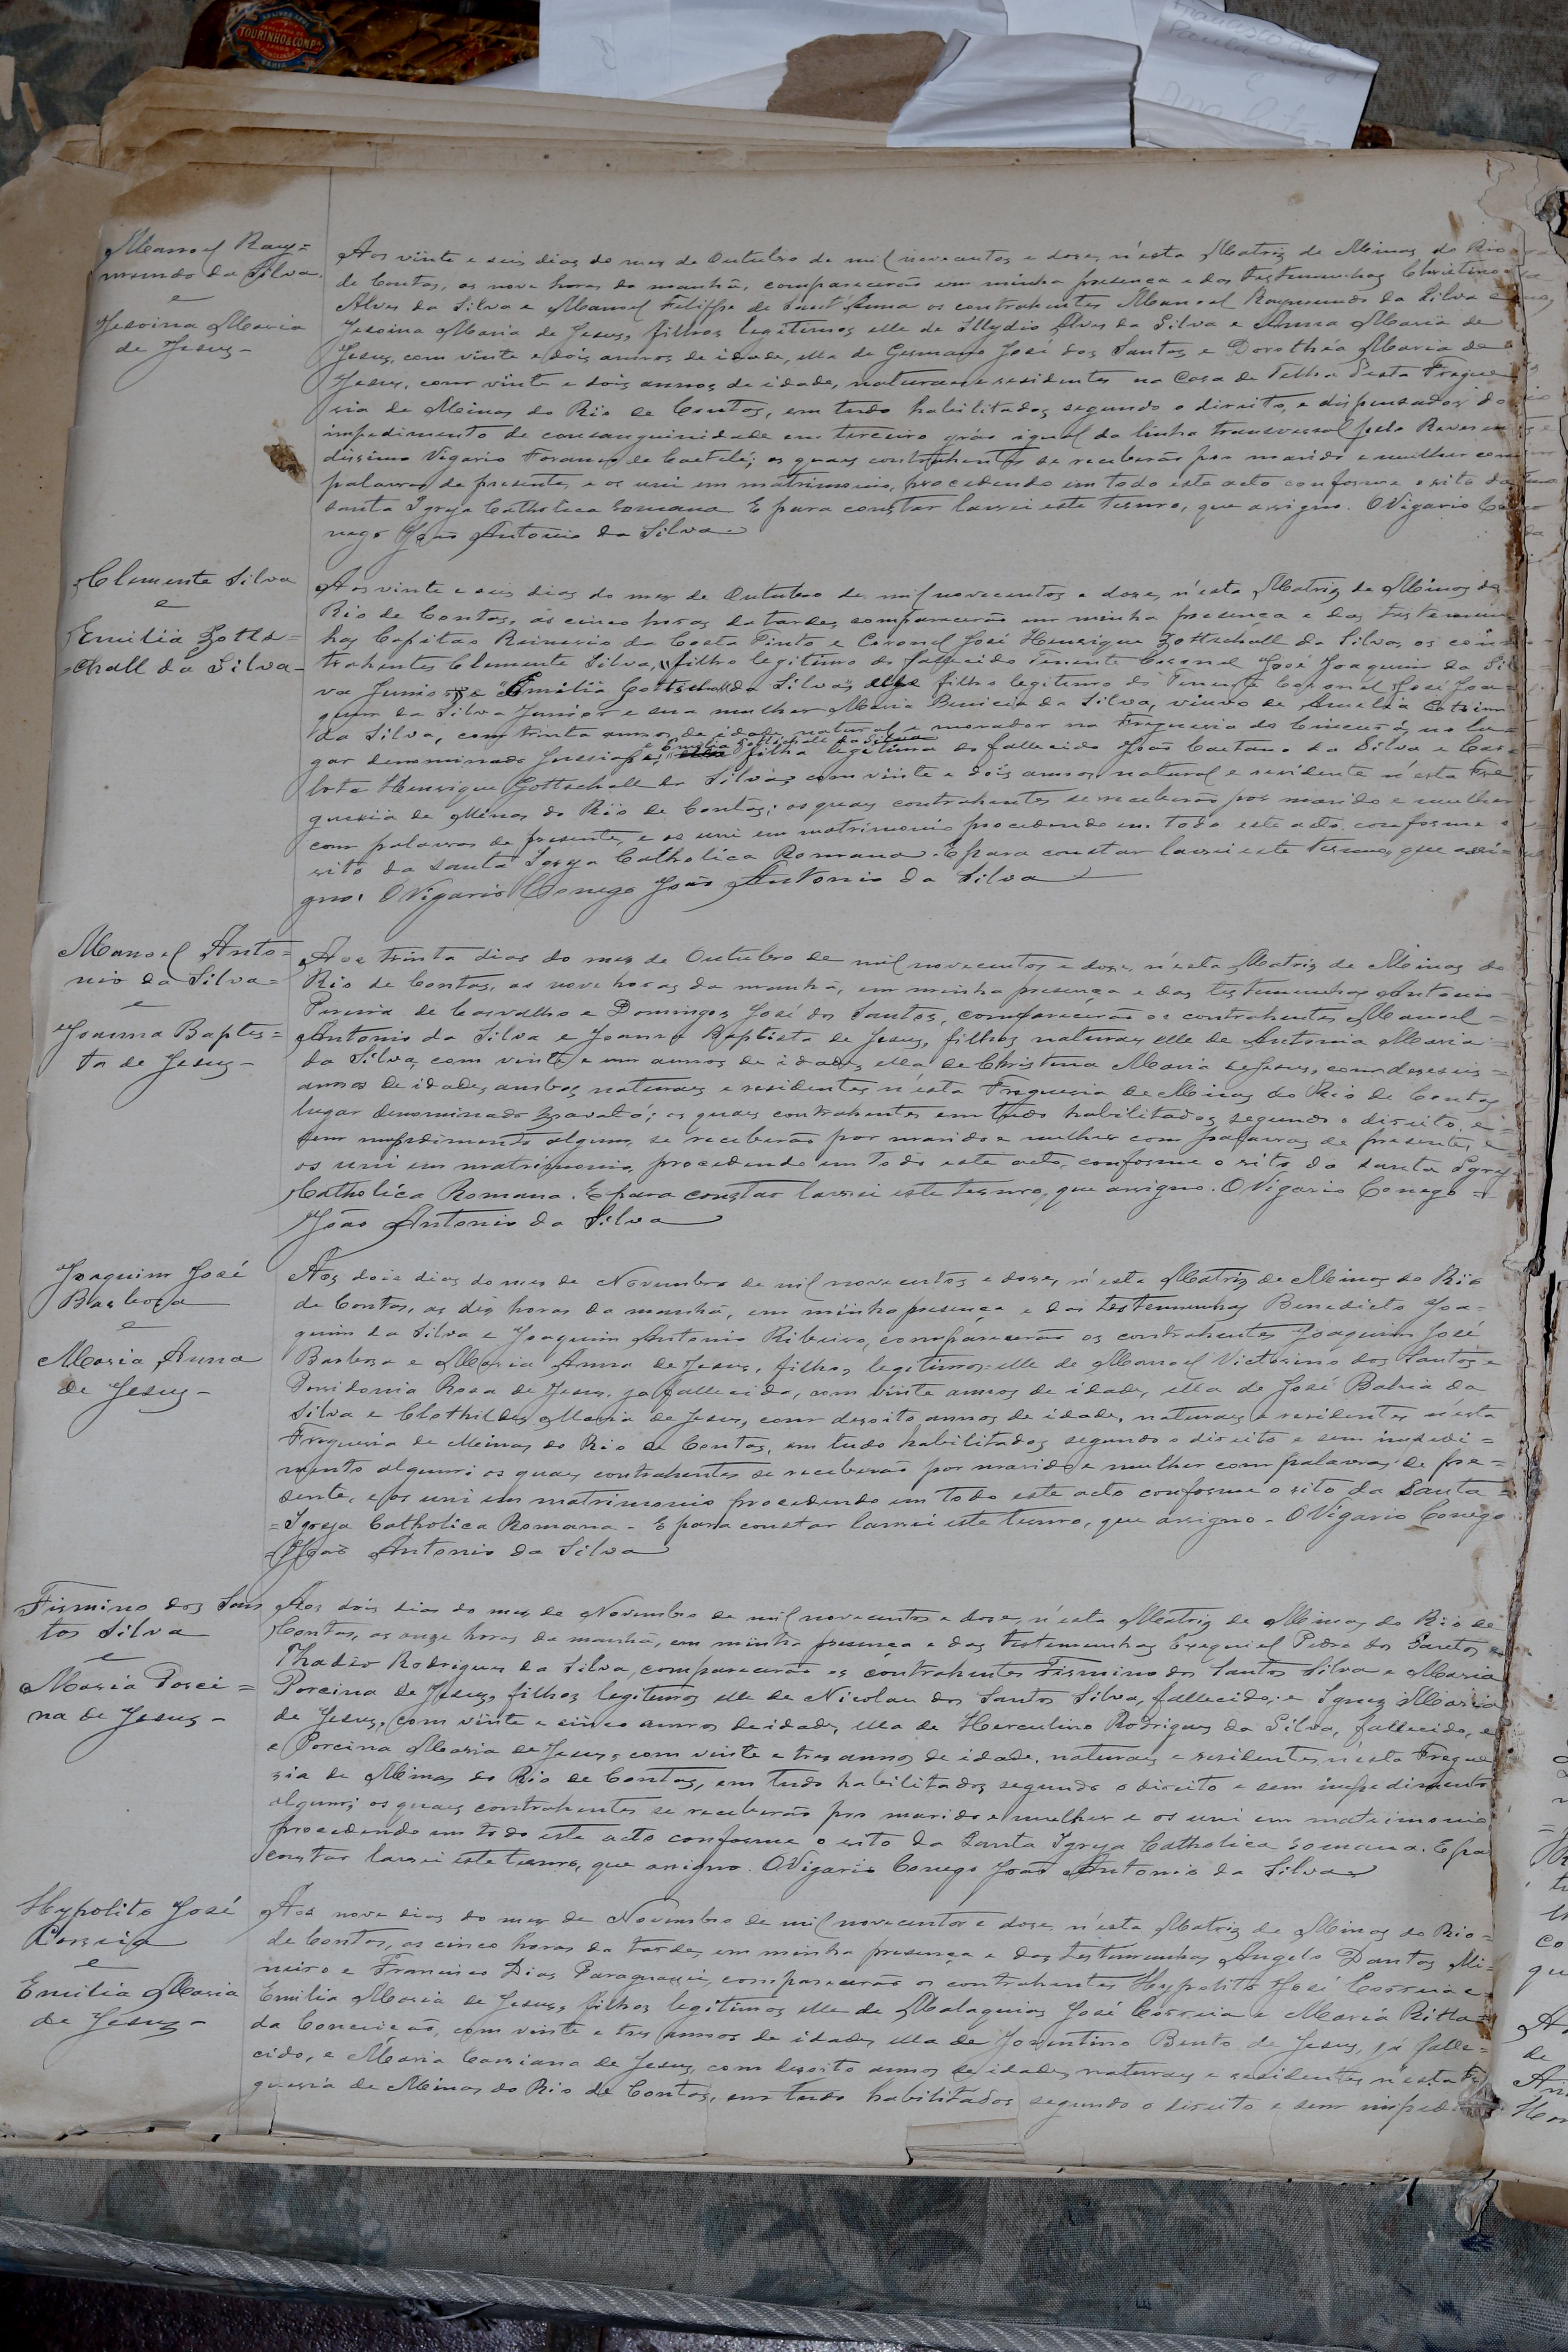 TOURINHO & COMP.
BAHIA
Manoel Ray=
mundo da Silva
e
Jesoina Maria
de Jesus-
Aos vinte e seis dias do mez de Outubro de mil novecentos e doze, n'esta Matriz de Minas do Rio
de Contas, as nove horas da manhã, comparecerão em minha presença e das testemunhas Christino
Alves da Silva e Manoel Felippe de Sant'Anna os contrahentes Manoel Raymundo da Silva e
Jesoina Maria de Jesus, filhos legitimos, elle de Illydio Alves da Silva e Anna Maria de
Jesus, com vinte e dois annos de idade, ella de Germano José dos Santos e Dorothéa Maria de
Jesus, com vinte e dois annos de idade, naturaes e residentes na Casa de Telha desta Fregue
sia de Minas do Rio de Contas, em tudo habilitados segundo o direito, e dispensados do
impedimento de consanguinidade em terceiro gráo igual da linha transversal pelo Reveren
dissimo Vigario Foraneo de Caetité; os quaes contrahentes se receberão por marido e mulher com
palavras de presente, e os uni em matrimonio, procedendo em todo este acto conforme o rito da
santa Igreja Catholica Romana E para constar lavrei este termo, que assigno. O Vigario Co
nego João Antonio da Silva
Clemente Silva
e
Emilia Gotts=
chall da Silva-
Aos vinte e seis dias do mez de Outubro de mil novecentos e doze, n'esta Matriz de Minas do
Rio de Contas, as cinco horas da tarde, comparecerão em minha presença e das testemun
has Capitão Reinerio da Costa Pinto e Coronel José Henrique Gottschall da Silva, os con
trahentes Clemente Silva, filho legitimo do fallecido Tenente Coronel José Joaquim da Sil
va Junior e Emilia Gottschall da Silva, elle filho legitimo do Tenente Coronel José Joa
quim da Silva Junior e sua mulher Maria Benicia da Silva, viuvo de Amelia Cotrim
da Silva, com trinta annos de idade, natural e morador na Freguesia do Sincorá, no lu
e Emilia Gottschall da Silva
gar denominado Jussiape, filha legitima do fallecido João Caetano da Silva e Car
lota Henrique Gottschall da Silva, com vinte e dois annos, natural e residente n'esta Fre
guesia de Minas do Rio de Contas; os quaes contrahentes se receberão por marido e mulher
com palavras de presente, e os uni em matrimonio procedendo em todo este acto conforme o
rito da Santa Igreja Catholica Romana. E para constar lavrei este termo, que assi=
gno. O Vigario Conego João Antonio da Silva
Manoel Anto=
nio da Silva=
e
Joanna Baptis=
ta de Jesus-
Aos trinta dias do mez de Outubro de mil novecentos e doze, n'esta Matriz de Minas do
Rio de Contas, as nove horas da manhã, em minha presença e das testemunhas Antonio
Pereira de Carvalho e Domingos José dos Santos, comparecerão os contrahentes Manoel=
Antonio da Silva e Joanna Baptista de Jesus, filhos naturaes elle de Antonia Maria
da Silva, com vinte e um annos de idade, ella de Christina Maria de Jesus, com dezeseis=
annos de idade, ambos naturaes e residentes n'esta Freguesia de Minas do Rio de Contas
lugar denominado; os quaes contrahentes em tudo habilitados segundo o direito, e=
sem impedimento algum, se receberão por marido e mulher com palavras de presente, e
os uni em matrimonio, procedendo em todo este acto, conforme o rito da Santa Igreja
Catholica Romana. E para constar lavrei este termo, que assigno. O Vigario Conego =
João Antonio da Silva
Joaquim José
Barbosa
e
Maria Anna
de Jesus-
Aos dois dias do mez de Novembro de mil novecentos e doze, n'esta Matriz de Minas do Rio
de Contas, as dez horas da manhã, em minha presença e das testemunhas Benedicto Joa=
quim da Silva e Joaquim Antonio Ribeiro, comparecerão os contrahentes Joaquim José
Barbosa e Maria Anna de Jesus, filhos legitimos=elle de Manoel Victorino dos Santos e
Possidonia Rosa de Jesus, ja fallecida, com vinte annos de idade, ella de José Bahia da
Silva e Clothildes Maria de Jesus, com desoito annos de idade, naturaes e residentes n'esta
Freguesia de Minas do Rio de Contas, em tudo habilitados segundo o direito e sem impedi=
mento algum; os quaes contrahentes se receberão por marido e mulher com palavras de pre=
sente, e os uni em matrimonio procedendo em todo este acto conforme o rito da Santa=
=Igreja Catholica Romana- E para constar lavrei este termo, que assigno- O Vigario Conego
João Antonio da Silva
Firmino dos San
tos Silva
e
Maria Porci=
na de Jesus-
Aos dois dias do mez de Novembro de mil novecentos e doze, n'esta Matriz de Minas do Rio de
Contas, as onze horas da manhã, em minha presença e das testemunhas Ezequiel Pedro dos Santos e
Thadeo Rodrigues da Silva, comparecerão os contrahentes Firmino dos Santos Silva e Maria
Porcina de Jesus, filhos legitimos elle de Nicolau dos Santos Silva, fallecido, e Ignez Maria
de Jesus, com vinte e cinco annos de idade, ella de Herculino Rodrigues da Silva, fallecido, e
e Porcina Maria de Jesus, com vinte e tres annos de idade, naturaes e residentes n'esta Fregue
sia de Minas do Rio de Contas, em tudo habilitados segundo o direito e sem impedimento
algum; os quaes contrahentes se receberão por marido e mulher e os uni em matrimonio
procedendo em todo este acto conforme o rito da Santa Igreja Catholica Romana. E pa
constar lavrei este termo, que assigno. O Vigario Conego João Antonio da Silva
Hypolito José
Correia
e
Emilia Maria
de Jesus-
Aos nove dias do mez de Novembro de mil novecentos e doze, n'esta Matriz de Minas do Rio=
de Contas, as cinco horas da tarde, em minha presença e das testemunhas Angelo Dantas Mi=
neiro e Francisco Dias Paraguassú, comparecerão os contrahentes Hypolito José Correia e
Emilia Maria de Jesus, filhos legitimos elle de Malaquias José Correia e Maria Ritta=
da Conceição, com vinte e tres annos de idade, ella de Jovintino Bento de Jesus, já falle=
cido, e Maria Cassiana de Jesus, com desoito annos de idade, naturaes e residentes n'esta Fre
guesia de Minas do Rio de Contas, em tudo habilitados segundo o direito e sem impedi